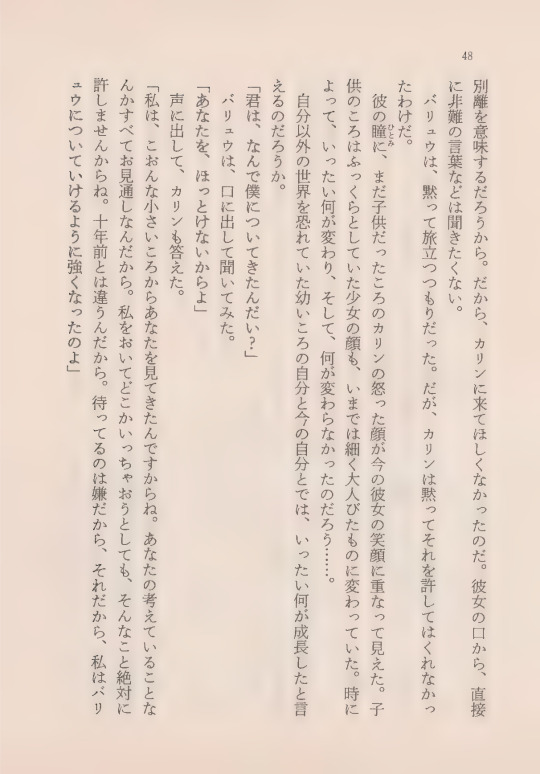 48
別離を意味するだろうから。だから、カリンに来てほしくなかったのだ。彼女の口から、直接
に非難の言葉などは聞きたくない。
バリュウは、黙って旅立つつもりだった。だが、カリンは黙ってそれを許してはくれなかっ
たわけだ。
彼の瞳に、まだ子供だったころのカリンの怒った顔が今の彼女の笑顔に重なって見えた。子
ひとみ
供のころはふっくらとしていた少女の顔も、いまでは細く大人びたものに変わっていた。時に
よって、いったい何が変わり、そして、何が変わらなかったのだろう……。
自分以外の世界を恐れていた幼いころの自分と今の自分とでは、いったい何が成長したと言
えるのだろうか。
「君は、なんで僕についてきたんだい？」
バリュウは、口に出して聞いてみた。
「あなたを、ほっとけないからよ」
声に出して、カリンも答えた。
「私は、こおんな小さいころからあなたを見てきたんですからね。あなたの考えていることな
んかすべてお見通しなんだから。私をおいてどこかいっちゃおうとしても、そんなこと絶対に
許しませんからね。十年前とは違うんだから。待ってるのは嫌だから、それだから、私はバリ
ュウについていけるように強くなったのよ」